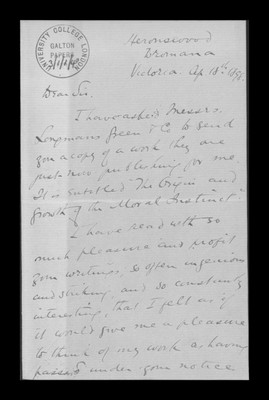 UNIVERSITY COLLEGE LONDON
GALTON
PAPERS
Heronswood
Dromana
Victoria Ap. 18th
Dear Sir.
I have asked Messrs.
Longmans Green & Co to send
you a copy of a work they are
just now publishing for me.
It is entitled "The Origin and
Growth of the Moral Instinct".
I have read with so
much pleasure and profit
your writings, so often ingenious
and striking and so constantly
interesting, that I felt as if
it would give me a pleasure
to think of my work as having
passed under your notice